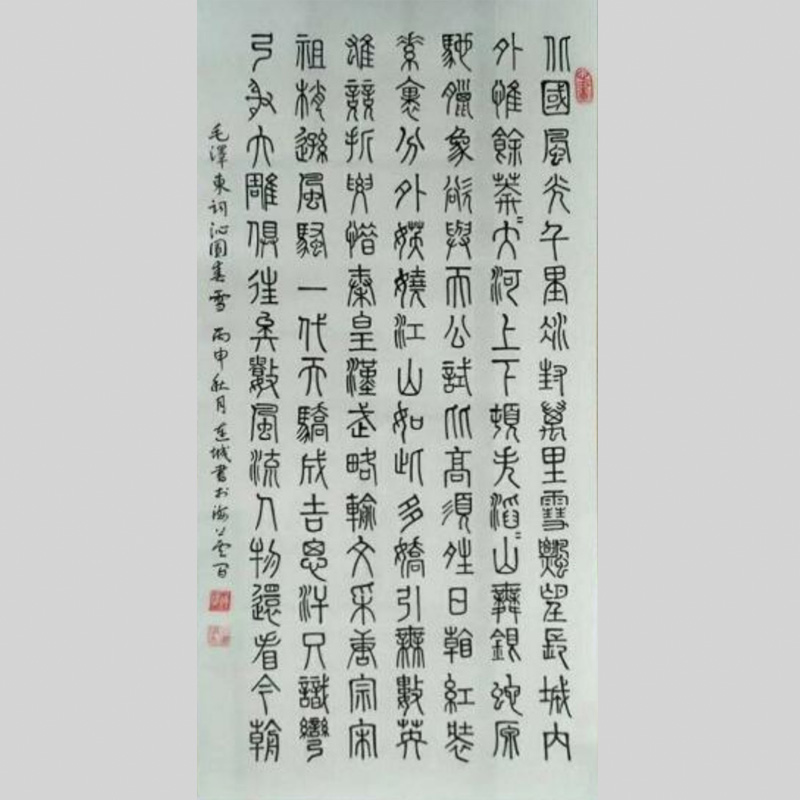 北國風光千里冰封萬里雪飄望長城內
外惟餘莽〻大河上下頓失滔〻山舞銀蛇原
馳臘象欲與天公試比高須晴日看紅裝
素裹分外妖嬈江山如此多嬌引無數英
雄競折腰惜秦皇漢武略輸文采唐宗宋
祖稍遜風騷一代天驕成吉思汗只識彎
弓射大雕俱往矣數風流人物還看今朝
毛澤東詞沁園春雪 丙申秋月連城書於海